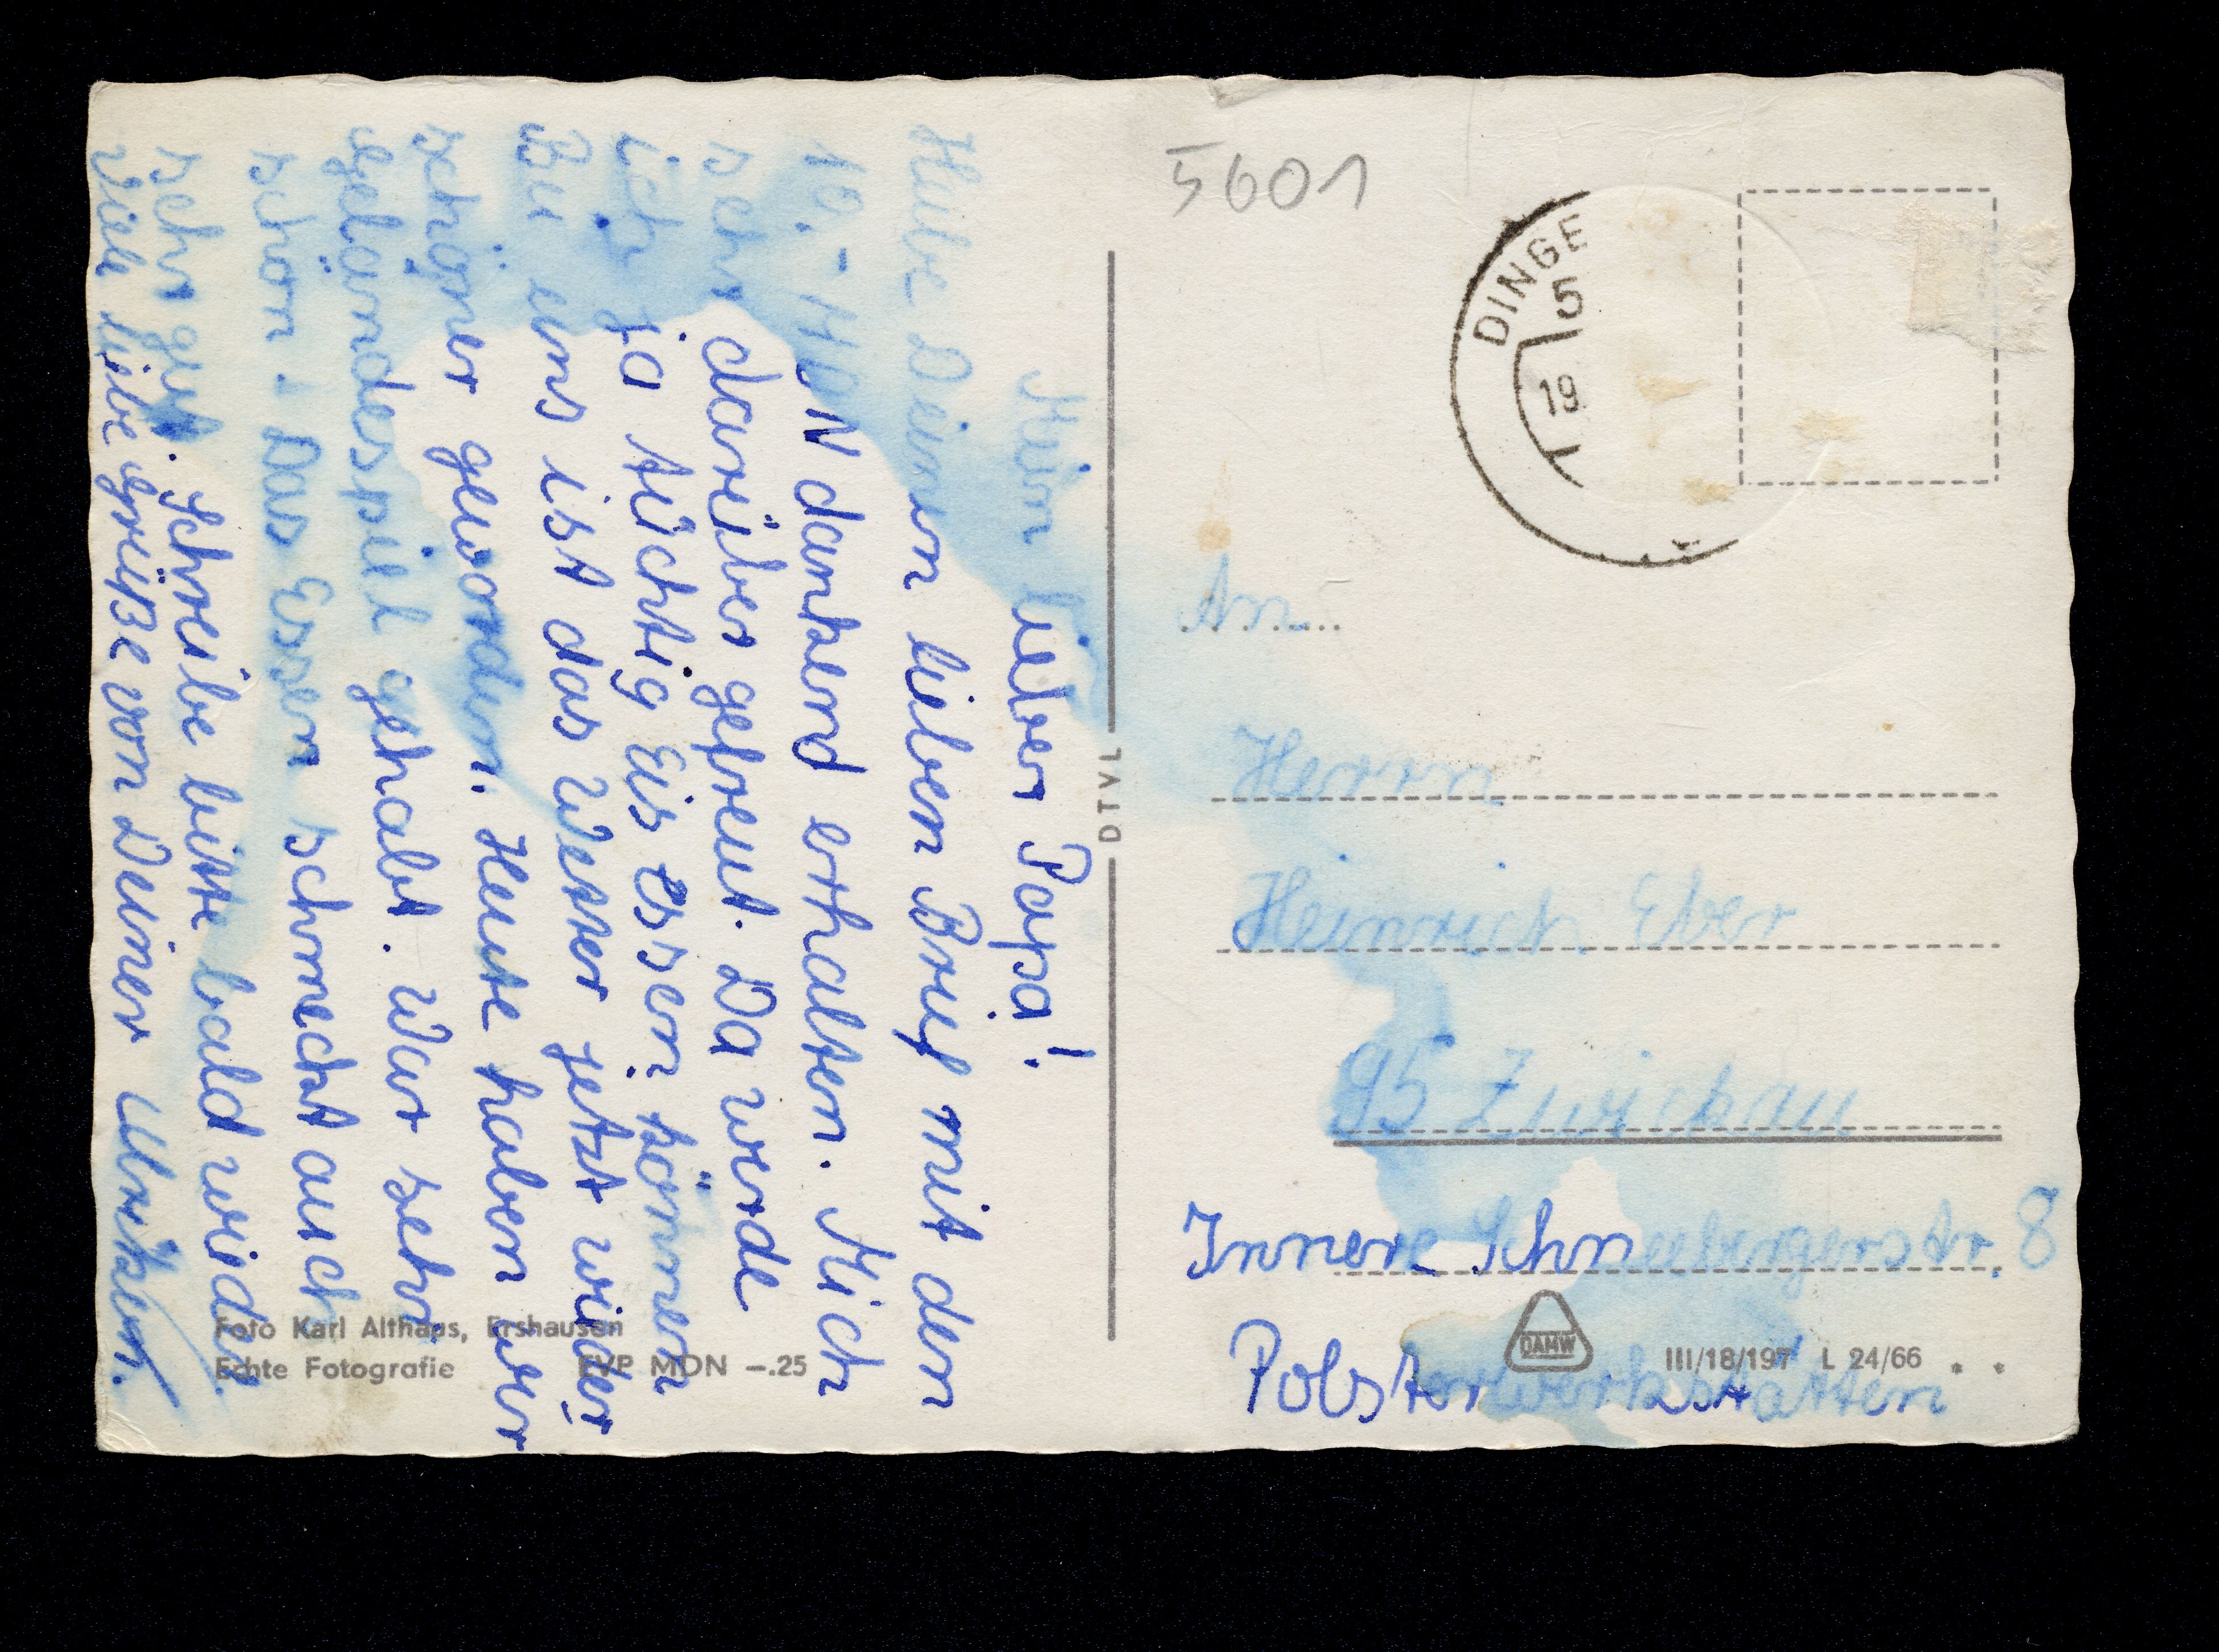 Mein lieber Papa!
Habe Deinen lieben Brief mit den
10.- MDN dankend erhalten. Mich
sehr darüber gefreut. Da werde
ich ja tüchtig Eis essen können
Bei uns ist das Wetter jetzt wieder
schöner geworden. Heute haben wir
Geländespiel gehabt. War sehr
schön. Das Essen schmeckt auch
sehr gut. Schreibe bitte bald wieder.
Viele liebe Grüße von Deiner
Foto Karl Althaus, Ershausen
Echte Fotografie EVP MDN –.25
DTVL
5601
DINGE
5
19
An
Herrn
Heinrich Eber
95 Zwickau
Innere Schneebergerstr. 8
Polsterwerkstätten
DAMW
III/18/197 L 24/66